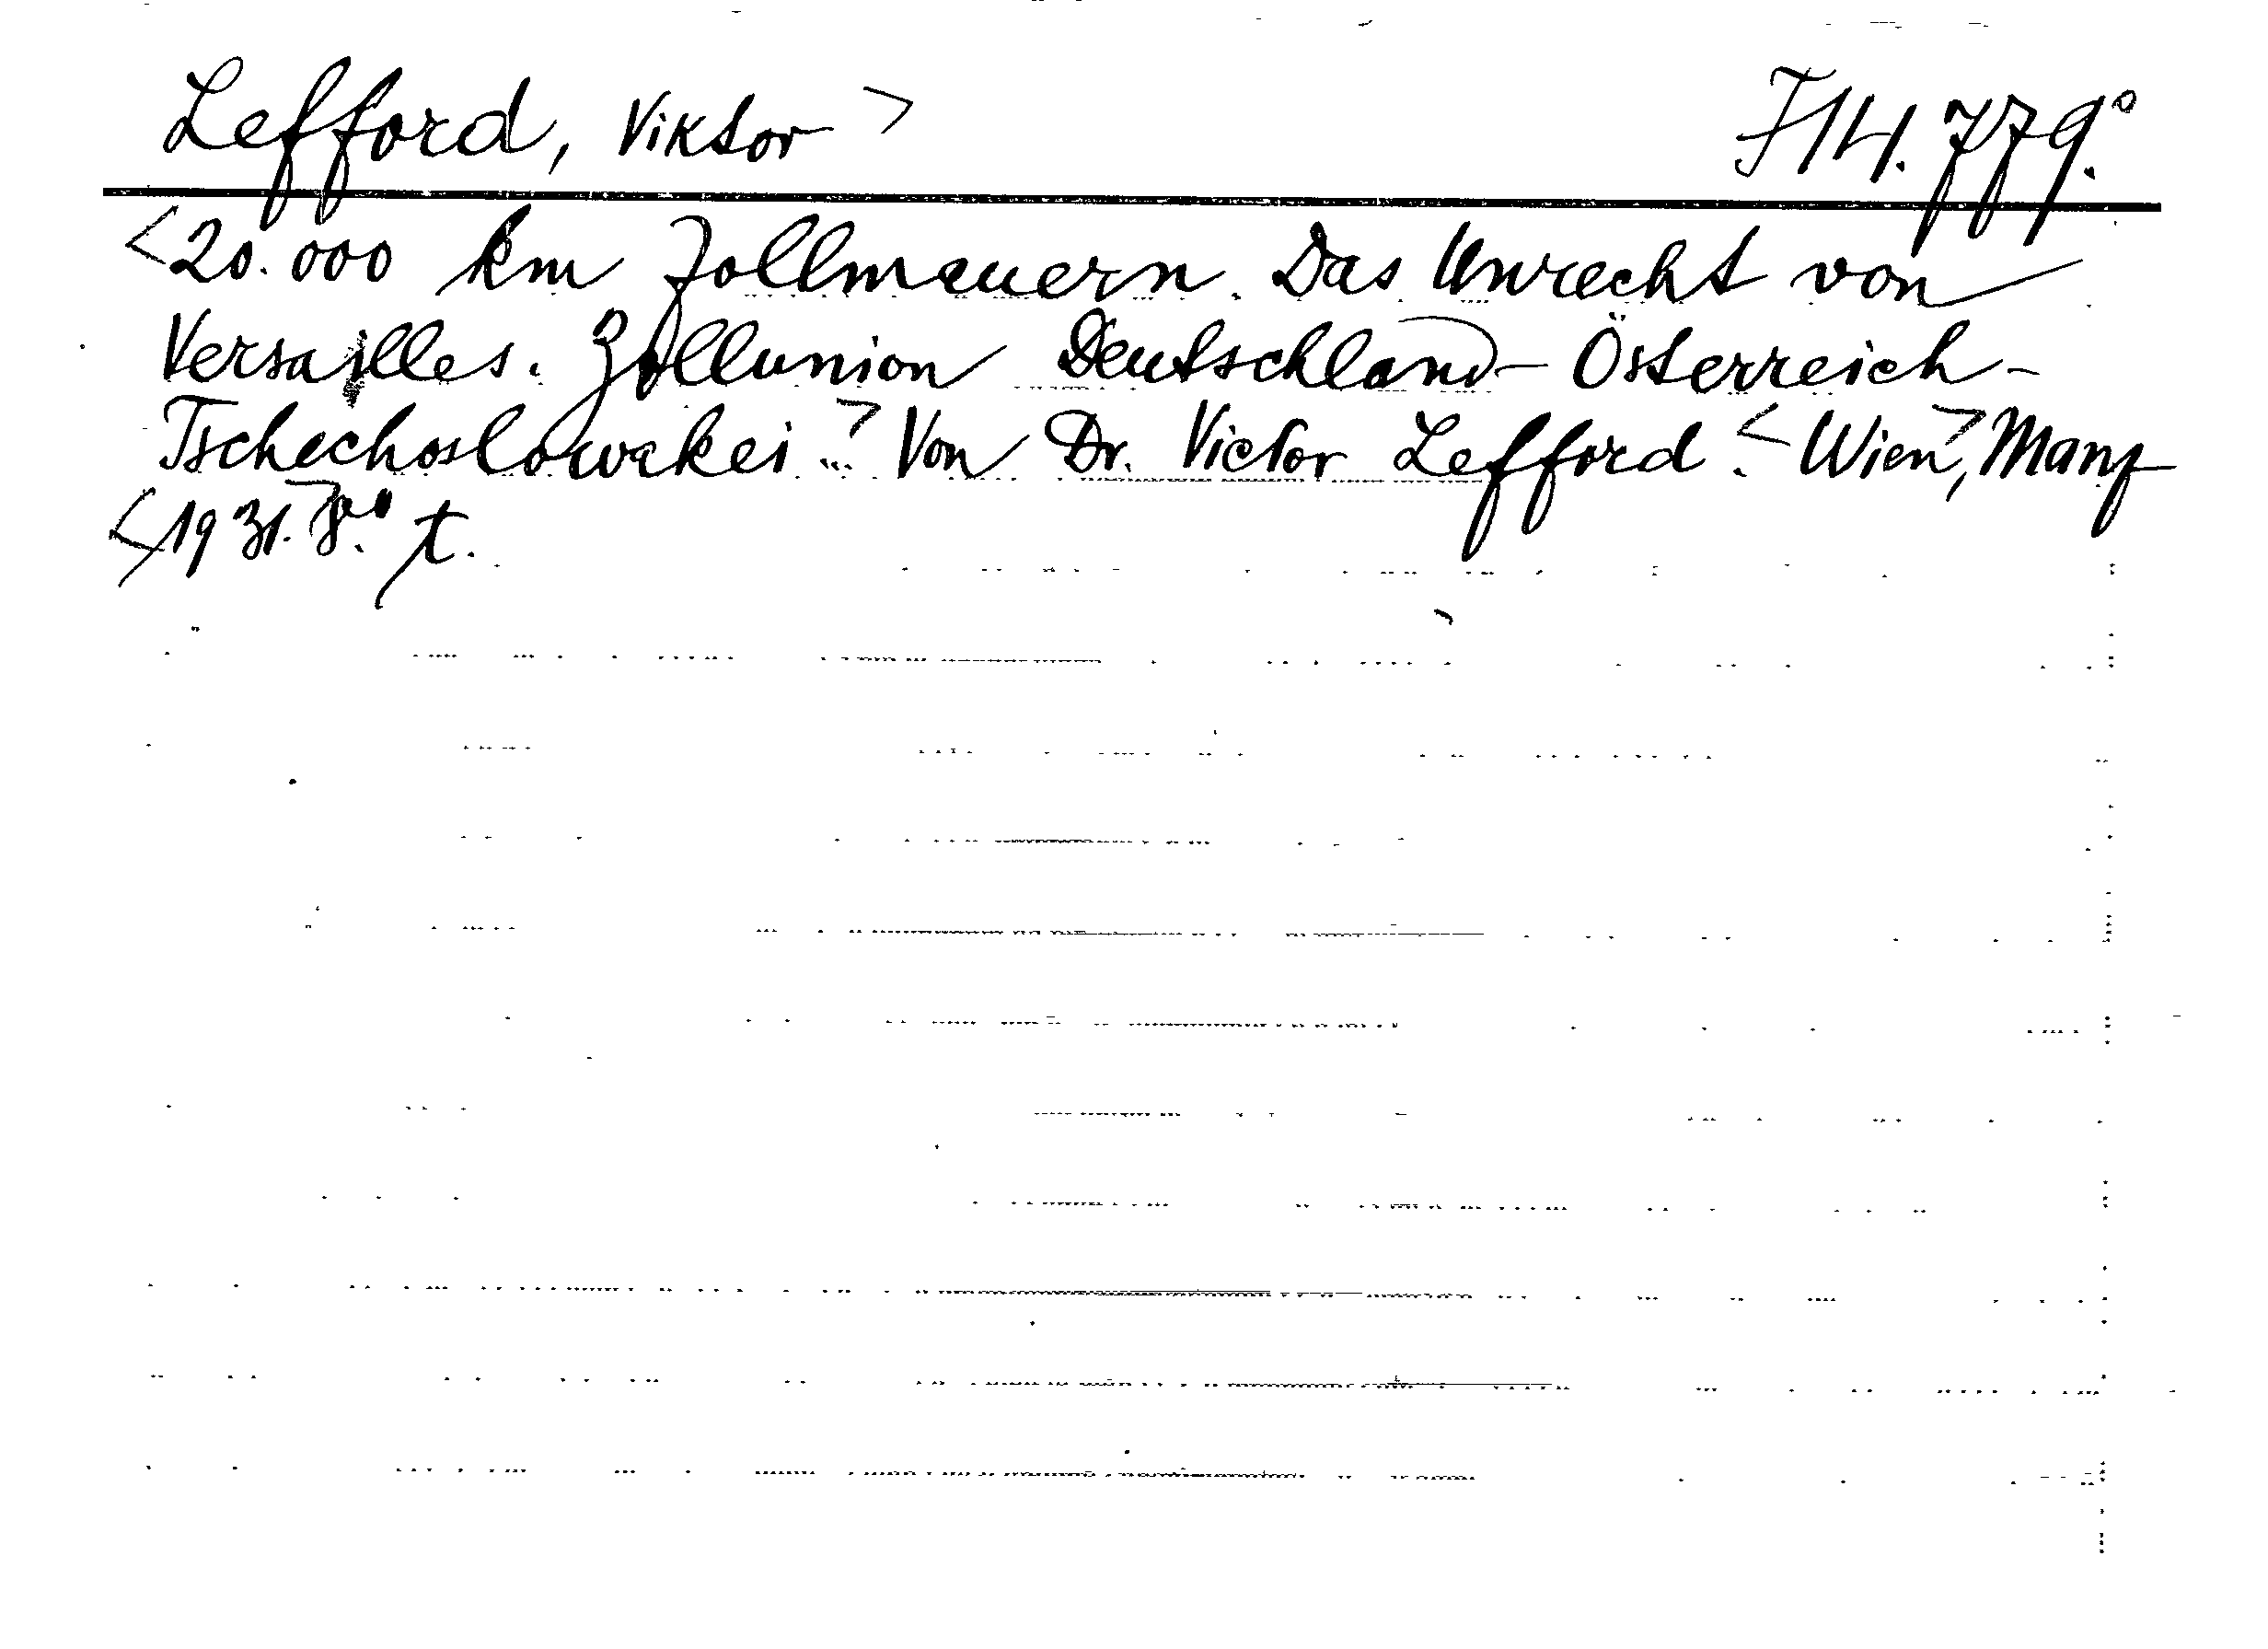 Lefford, Viktor > F 14.779.°
<20.000 km Zollmauern. Das Unrecht von
Versailles. Zollunion Deutschland-Österreich-
Tschechoslowakei...> Von Dr. Victor Lefford. <Wien>, Manz
<1931.> 8.° t.